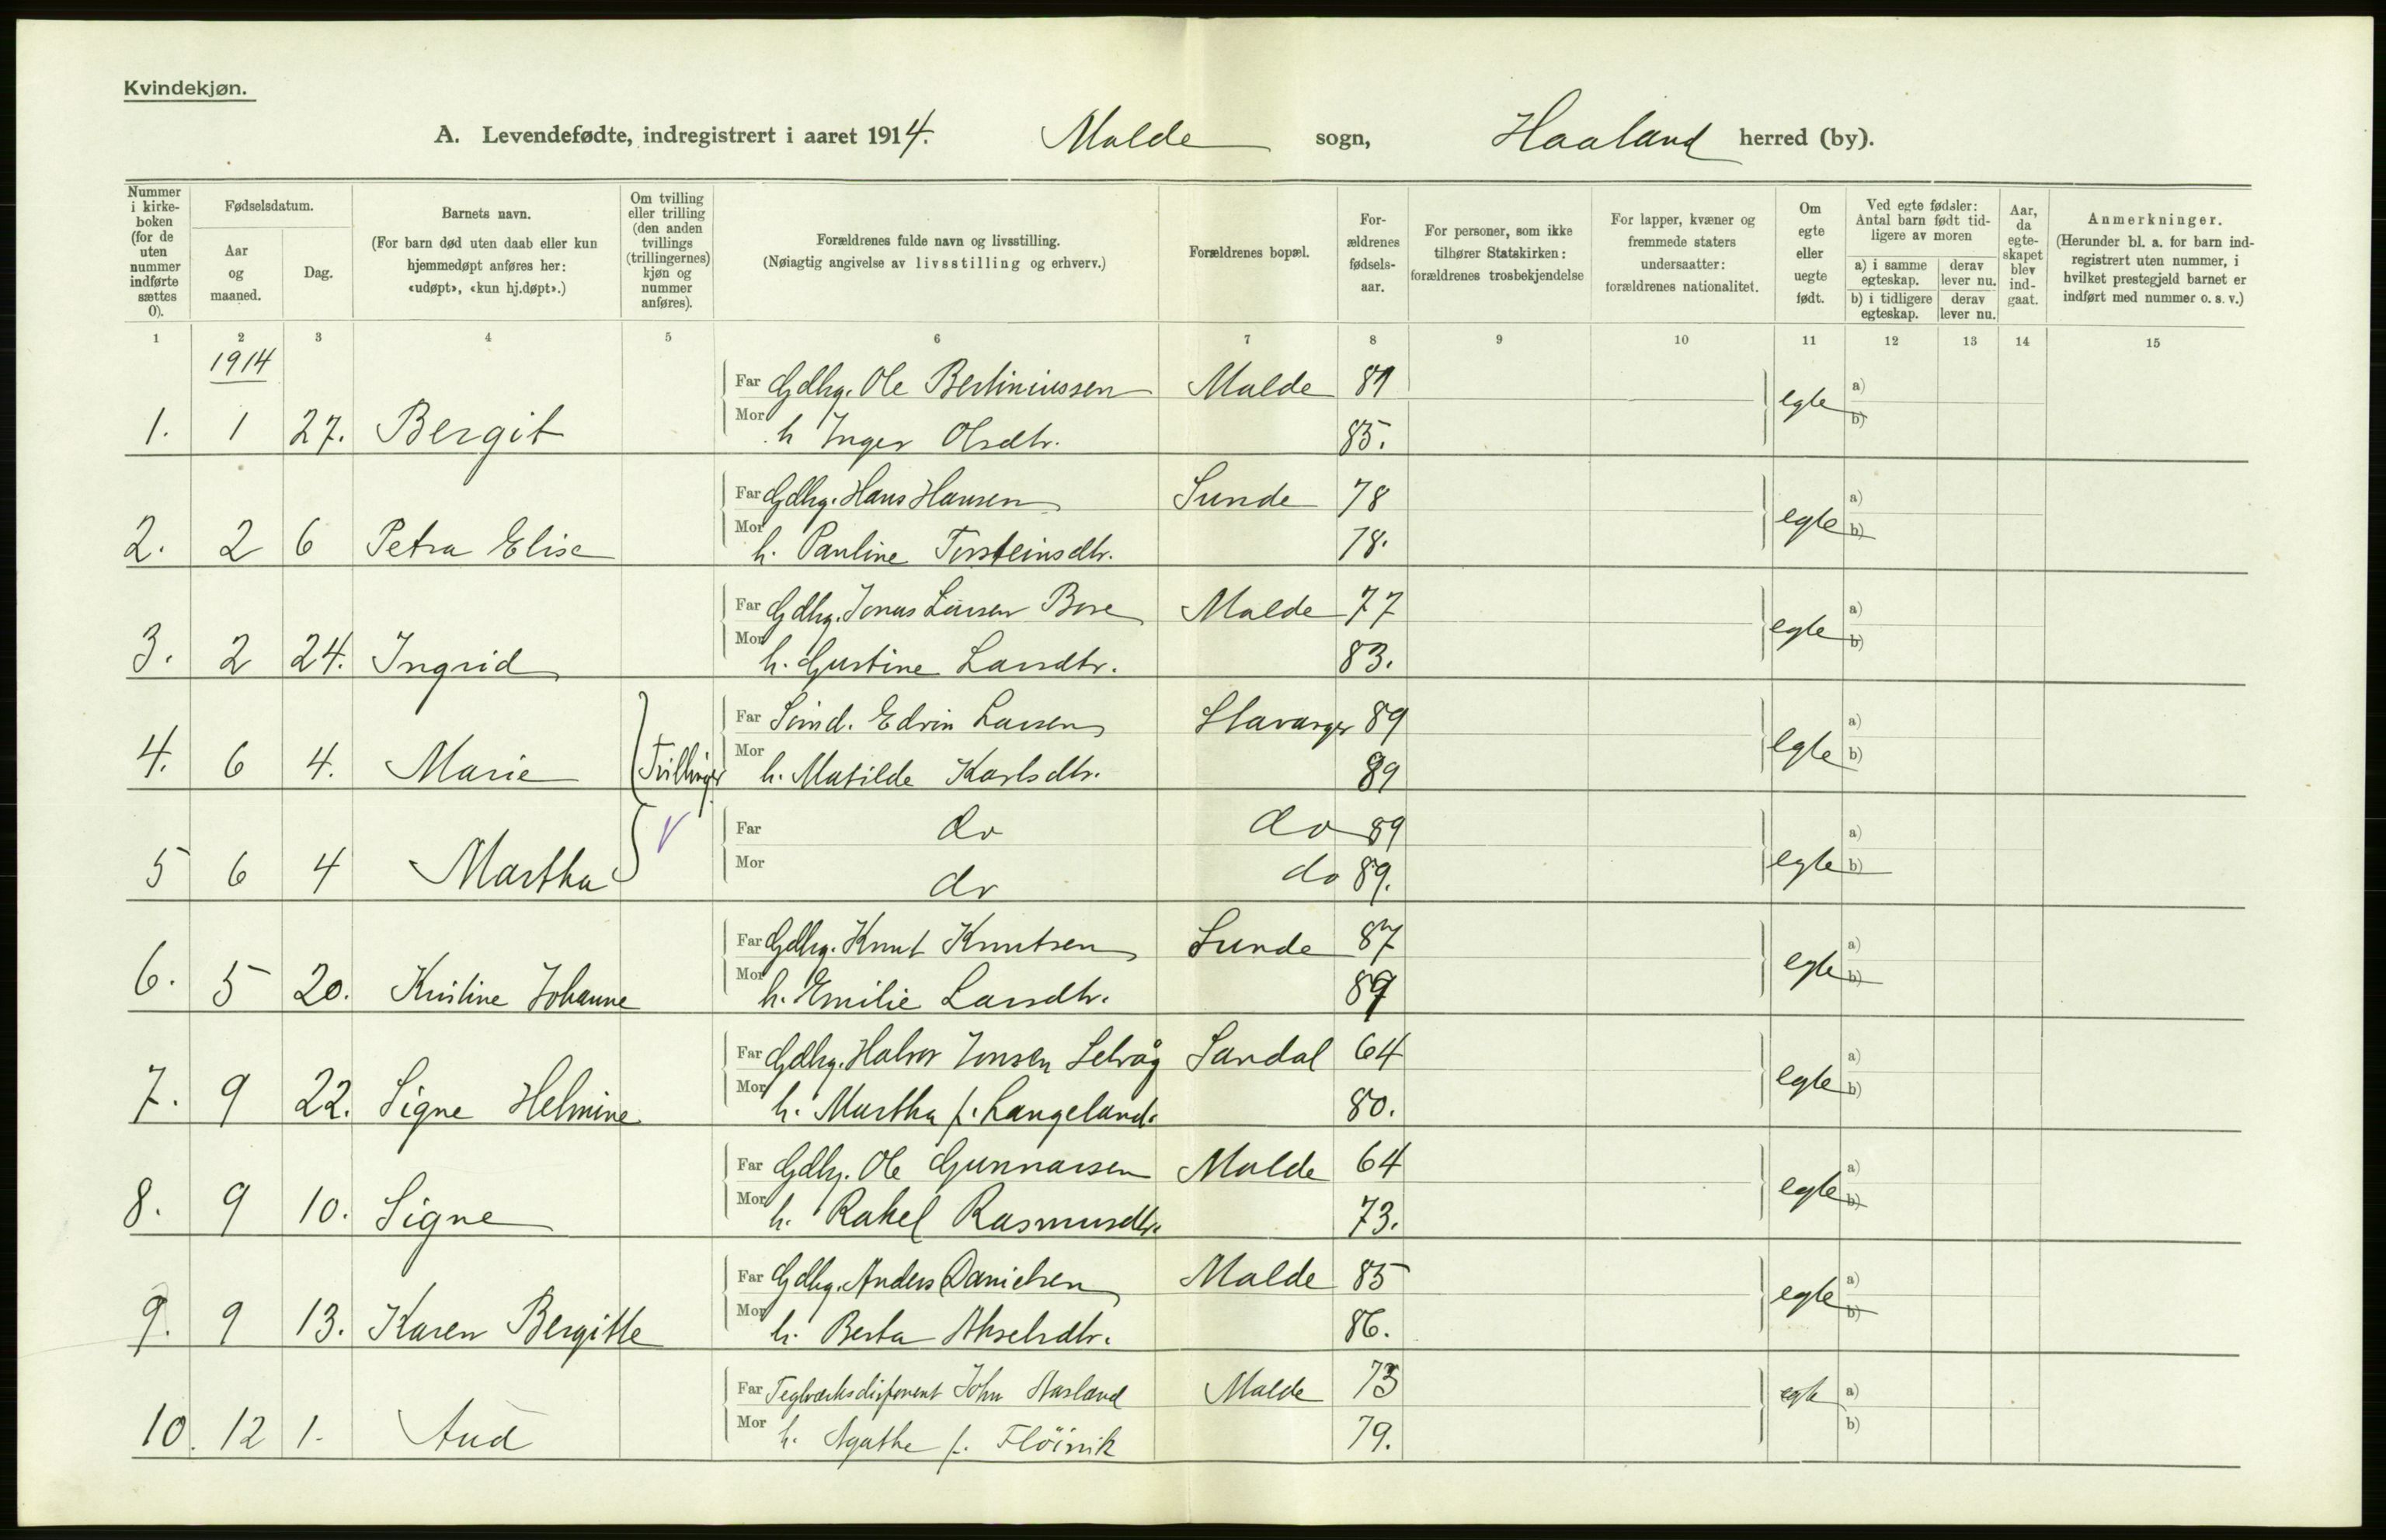 Kvindekjøn.
A. Levendefødte, indregistrert i aaret 1914. Malde sogn, Haaland herred (by).
Nummer i kirke-boken (for de uten nummer indførte sættes 0).
Fødselsdatum.
Aar og maaned.
Dag.
Barnets navn.
(For barn død uten daab eller kun hjemmedøpt anføres her: «udøpt», «kun hj.døpt».)
Om tvilling eller trilling (den anden tvillings (trillingernes) kjøn og nummer anføres).
Forældrenes fulde navn og livsstilling.
(Nøiagtig angivelse av livsstilling og erhverv.)
Forældrenes bopæl.
For-ældrenes fødsels-aar.
For personer, som ikke tilhører Statskirken: forældrenes trosbekjendelse
For lapper, kvæner og fremmede staters undersaatter: forældrenes nationalitet.
Om egte eller uegte født.
Ved egte fødsler: Antal barn født tid-ligere av moren
a) i samme egteskap.
derav lever nu.
b) i tidligere egteskap.
derav lever nu.
Aar, da egte-skapet blev ind-gaat.
Anmerkninger.
(Herunder bl. a. for barn ind-registrert uten nummer, i hvilket prestegjeld barnet er indført med nummer o. s. v.)
1 2 3 4 5 6 7 8 9 10 11 12 13 14 15
1914
Far Gdbg. Ole Bertiniussen Malde 81 egte a)
1. 1 27. Bergit Mor h Inger Olsdtr. 85. b)
Far Gdbg. Hans Hansen Sunde 78 egte a)
2. 2 6 Petra Elise Mor h. Pauline Torsteinsdtr. 78. b)
Far Gdbg. Jonas Larsen Bore Malde 77 egte a)
3. 2 24. Ingrid Mor h. Gustine Larsdtr. 83. b)
Far Edvin Larsen Stavanger 89 egte a)
4. 6 4. Marie Tvillinger Mor h. Matilde Karlsdtr. 89 b)
Far do do 89 egte a)
5 6 4 Martha Mor do do 89. b)
Far Gdbg. Knut Knutsen Sunde 87 egte a)
6. 5 20. Kristine Johanne Mor h. Emilie Larsdtr. 89 b)
Far Gdbg. Halvor Jonsen Selvåg Sandal 64 egte a)
7. 9 22. Signe Helmine Mor h. Martha f. Langeland. 80. b)
Far Gdbg. Ole Gunnarsen Malde 64 egte a)
8. 9 10. Signe Mor h. Rakel Rasmusdtr. 73. b)
Far Gdbg. Anders Danielsen Malde 85 egte a)
9. 9 13. Karen Bergitte Mor h. Berta Akselsdtr. 86. b)
Far Teglværksdisponent John Aasland Malde 73 egte a)
10. 12 1. Aud Mor h. Agathe f. Fløisvik 79. b)